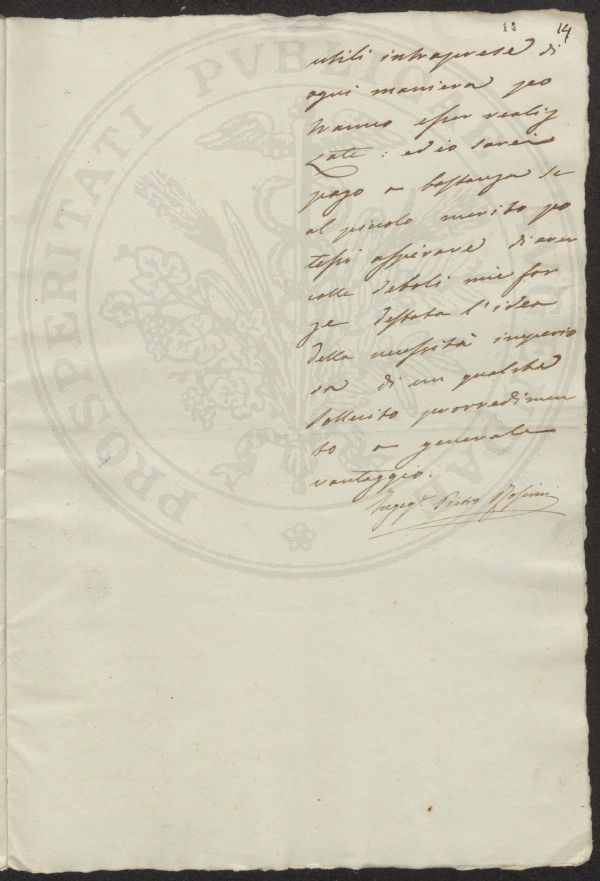 11 14
utili intraprese di
ogni maniera po
tranno esser realiz
zate: ed io sarei
pago a bastanza se
al piccolo merito po
tessi aspirare di aver
colle deboli mie for
ze destata l'idea
della necessità imperio
sa di un qualche
sollecito provvedimen
to a generale
vantaggio.
Ingeg.r Pietro
PROSPERITATI PVBLICAE